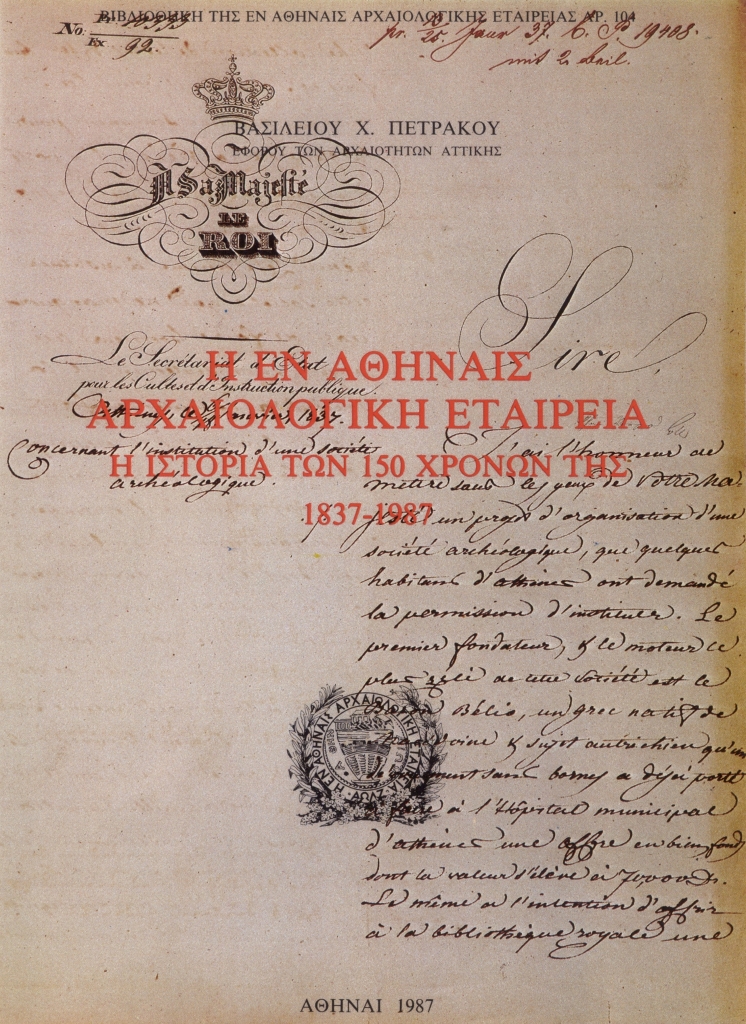 ΒΙΒΛΙΟΘΗΚΗ ΤΗΣ ΕΝ ΑΘΗΝΑΙΣ ΑΡΧΑΙΟΛΟΓΙΚΗΣ ΕΤΑΙΡΕΙΑΣ ΑΡ. 104
No:
Ex 92.
25. Janr 37.
mit 2 Beil.
ΒΑΣΙΛΕΙΟΥ Χ. ΠΕΤΡΑΚΟΥ
ΕΦΟΡΟΥ ΤΩΝ ΑΡΧΑΙΟΤΗΤΩΝ ΑΤΤΙΚΗΣ
A Sa Majesté
LE
ROI
Sire,
Le Secrétariat d'Etat
pour les Cultes et d'Instruction publique.
Η ΕΝ ΑΘΗΝΑΙΣ
ΑΡΧΑΙΟΛΟΓΙΚΗ ΕΤΑΙΡΕΙΑ
Η ΙΣΤΟΡΙΑ ΤΩΝ 150 ΧΡΟΝΩΝ ΤΗΣ
1837-1987
1837.
Concernant l'institution d'une société
archéologique.
J'ai l'honneur de
mettre sous les yeux de Votre Ma-
jesté un projet d'organisation d'une
société archéologique, que quelques
habitans d'athènes ont demandé
la permission d'instituer. Le
premier fondateur, & le moteur le
plus zélé de cette société est le
Baron Bélio, un grec natif de
& sujet autrichien qu'un
sans bornes a déjà porté
à faire à l'hôpital municipal
d'athènes une offre en bien fonds
dont la valeur s'élève à 70,000 D.
Le même a l'intention d'offrir
à la bibliothèque royale une
Η ΕΝ ΑΘΗΝΑΙΣ ΑΡΧΑΙΟΛΟΓΙΚΗ ΕΤΑΙΡΕΙΑ
ΑΩΛΖ
ΑΘΗΝΑΙ 1987